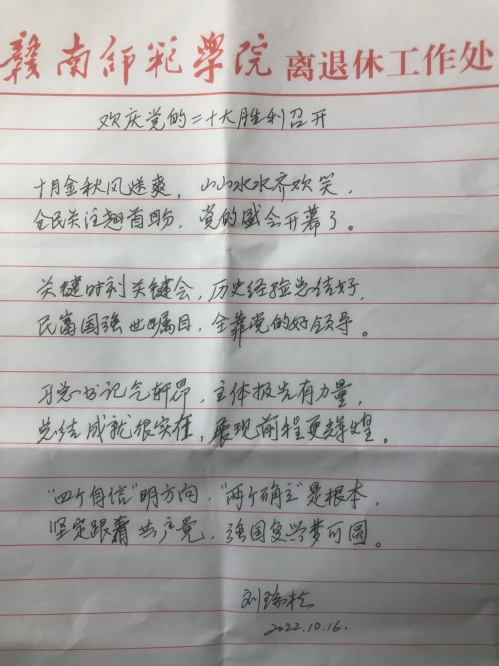 赣南师范学院 离退休工作处
欢庆党的二十大胜利召开
十月金秋风送爽，山山水水齐欢笑，
全民关注翘首盼，党的盛会开幕了。
关键时刻关键会，历史经验总结好，
民富国强世瞩目，全靠党的好领导。
习总书记气轩昂，主体报告有力量，
总结成就很实在，展现前程更辉煌。
“四个自信”明方向，“两个确立”是根本，
坚定跟着共产党，强国复兴梦可圆。
刘
2022.10.16.